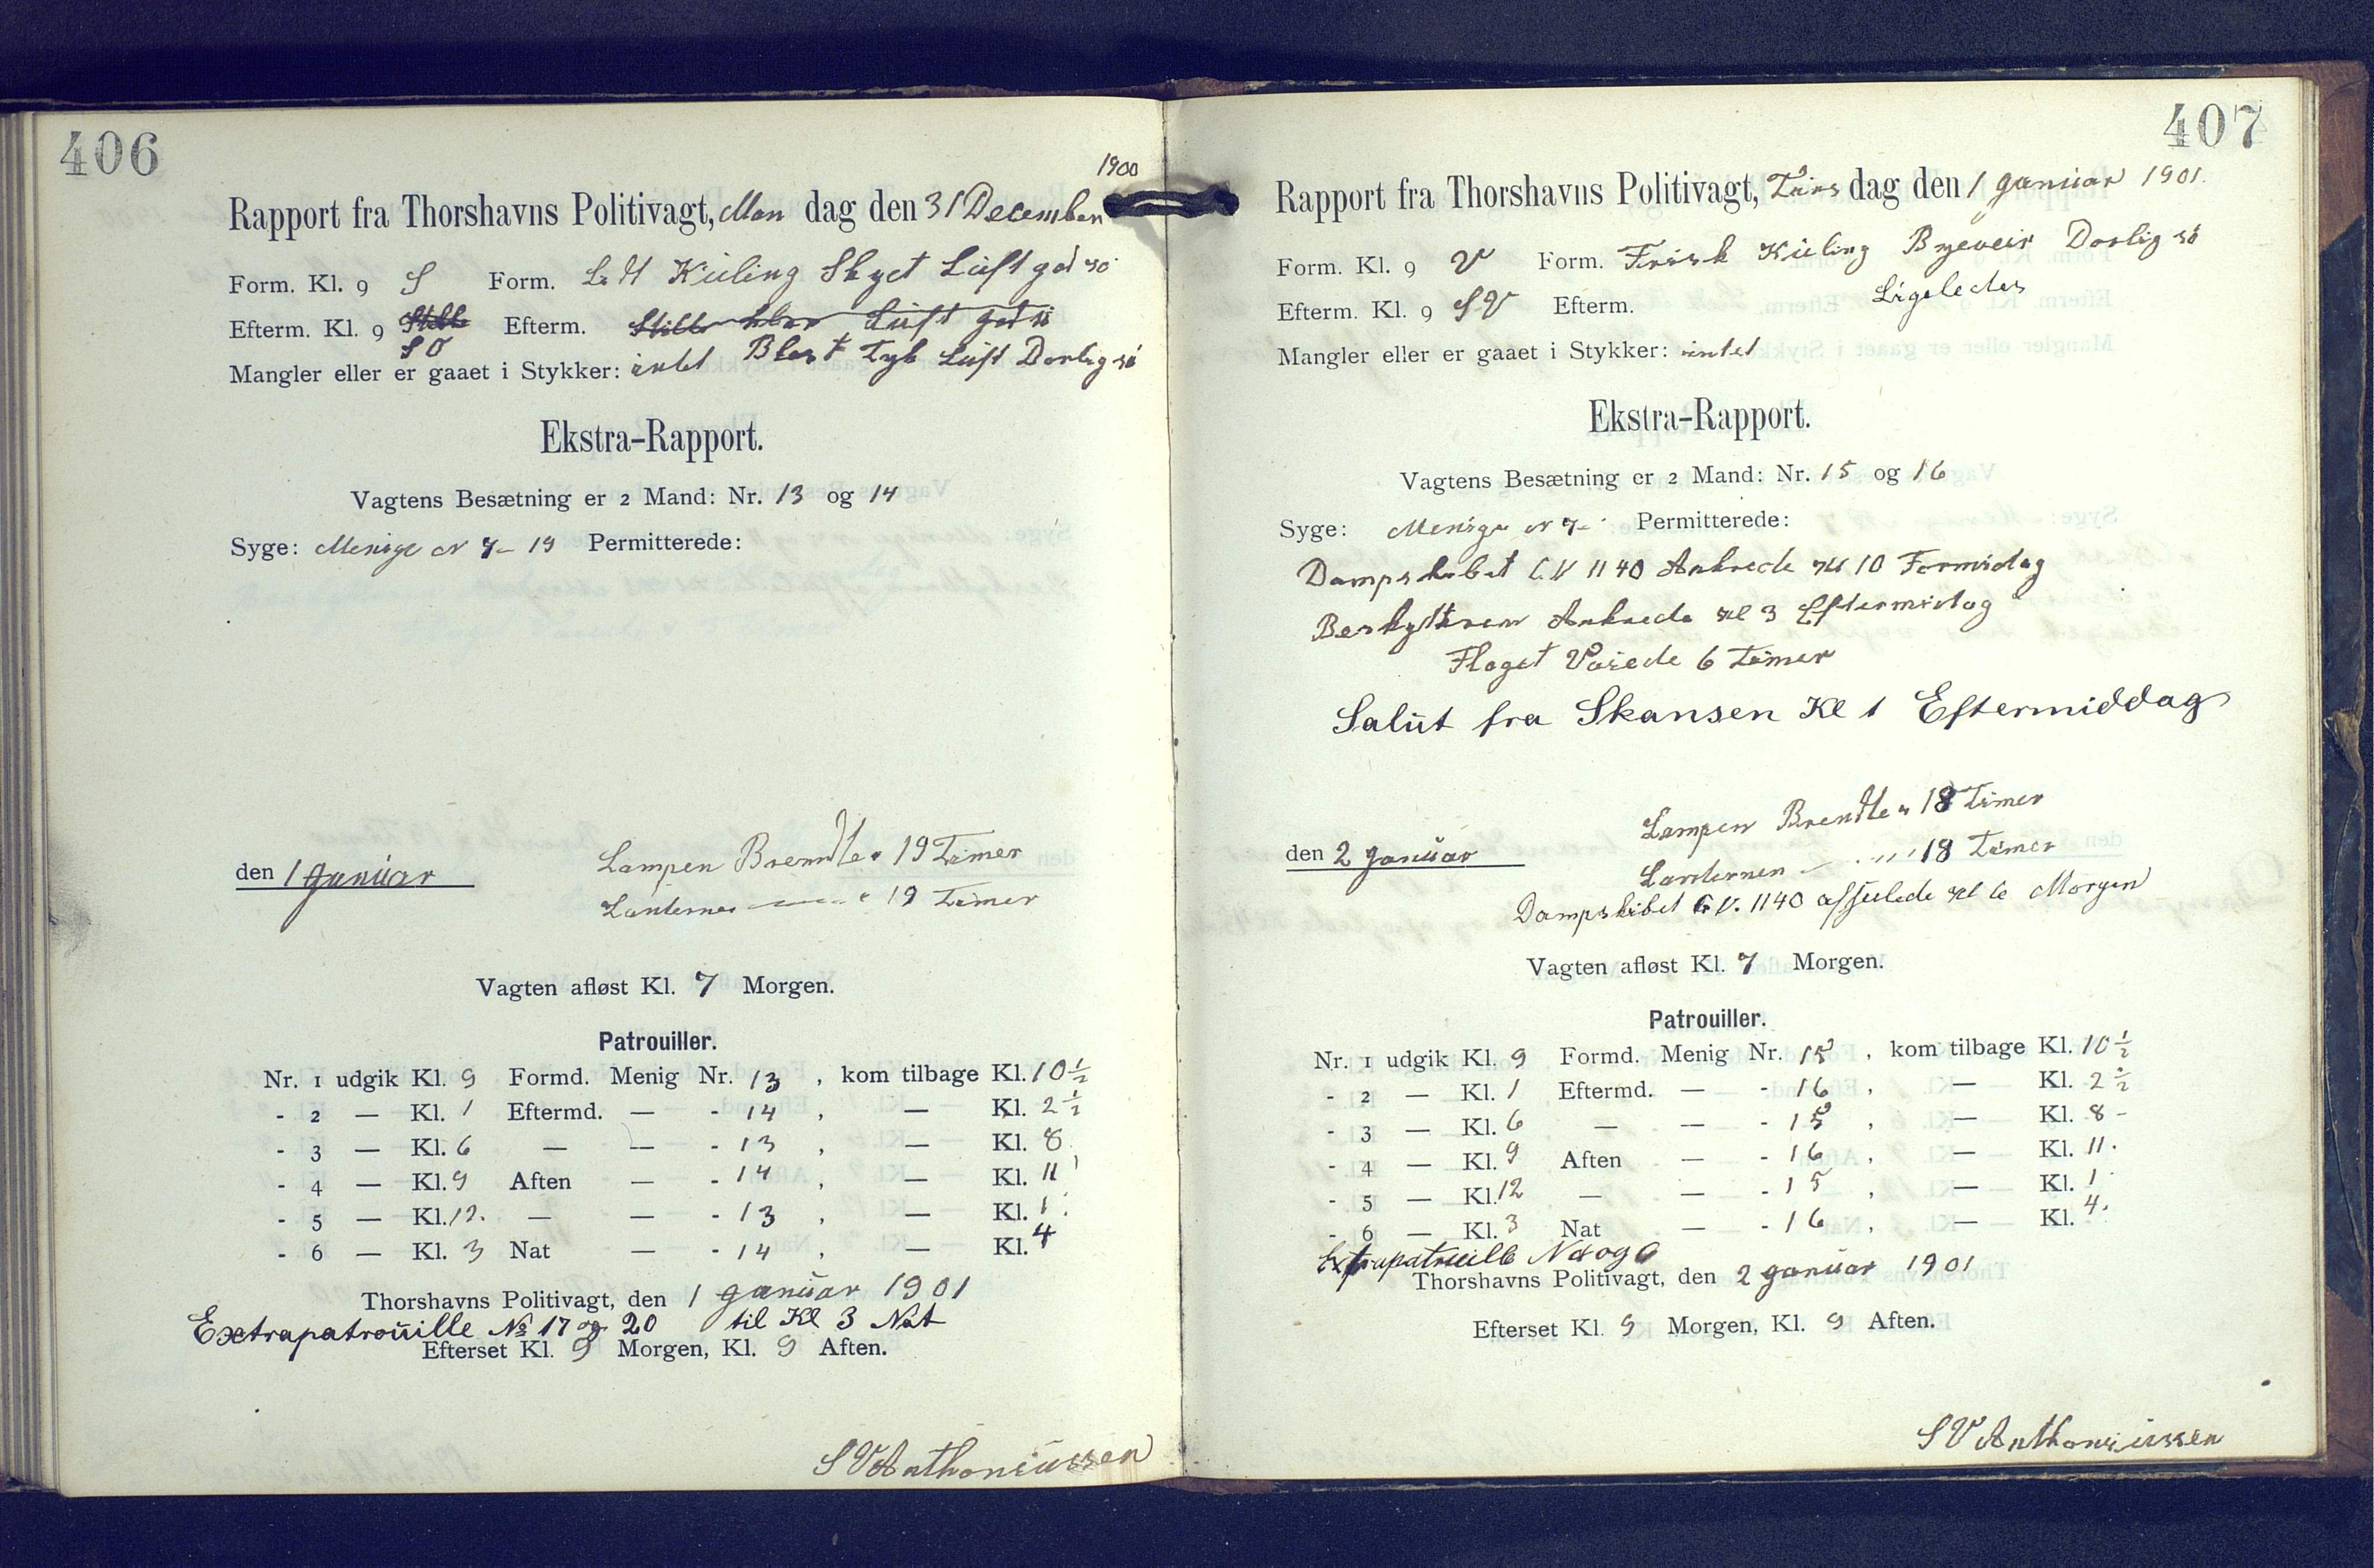 406
1900
Rapport fra Thorshavns Politivagt, Man dag den 31 December
Form. Kl. 9 S Form. Let Küling Skyet Lüft god sö
Efterm. Kl. 9 Stille Efterm. Stille klar Lüft god sö
SO Blæst Tyk Lüft Daarlig sö
Mangler eller er gaaet i Stykker: intet
Ekstra-Rapport.
Vagtens Besætning er 2 Mand: Nr. 13 og 14
Syge: Menige N 7 - 19 Permitterede:
den 1 Januar
Lampen Brendte 19 Timer
Lanternen 19 Timer
Vagten afløst Kl. 7 Morgen.
Patrouiller.
Nr. 1 udgik Kl. 9 Formd. Menig Nr. 13, kom tilbage Kl. 10 ½
- 2 — Kl. 1 Eftermd. — - 14, — Kl. 2 ½
- 3 — Kl. 6 — — - 13, — Kl. 8
- 4 — Kl. 9 Aften — - 14, — Kl. 11
- 5 — Kl. 12. — — - 13, — Kl. 1
- 6 — Kl. 3 Nat — - 14, — Kl. 4
Thorshavns Politivagt, den 1 Januar 1901
Extrapatrouille No 17 og 20 til Kl 3 Nat
Efterset Kl. 9 Morgen, Kl. 9 Aften.
S V Anthoniussen
407
Rapport fra Thorshavns Politivagt, Tirs dag den 1 Januar 1901.
Form. Kl. 9 V Form. Frisk Küling Byeveir Daarlig sö
Efterm. Kl. 9 SV Efterm. Ligeledes
Mangler eller er gaaet i Stykker: intet
Ekstra-Rapport.
Vagtens Besætning er 2 Mand: Nr. 15 og 16
Syge: Menige N 7 - Permitterede:
Dampskibet 1140 Ankrede Kl 10 Formidag
Beskytteren Ankrede Kl 3 Eftermidag
Flaget Vaiede 6 Timer
Salüt fra Skansen Kl 1 Eftermiddag
den 2 Januar
Lampen Brendte 18 Timer
Lanternen 18 Timer
Dampskibet G.V. 1140 affeilede Kl 6 Morgen
Vagten afløst Kl. 7 Morgen.
Patrouiller.
Nr. 1 udgik Kl. 9 Formd. Menig Nr. 15, kom tilbage Kl. 10 ½
- 2 — Kl. 1 Eftermd. — - 16, — Kl. 2 ½
- 3 — Kl. 6 — — - 15, — Kl. 8 -
- 4 — Kl. 9 Aften — - 16, — Kl. 11.
- 5 — Kl. 12 — — - 15, — Kl. 1
- 6 — Kl. 3 Nat — - 16, — Kl. 4.
Extrapatrouille
Thorshavns Politivagt, den 2 Januar 1901
Efterset Kl. 9 Morgen, Kl. 9 Aften.
S V Anthoniussen